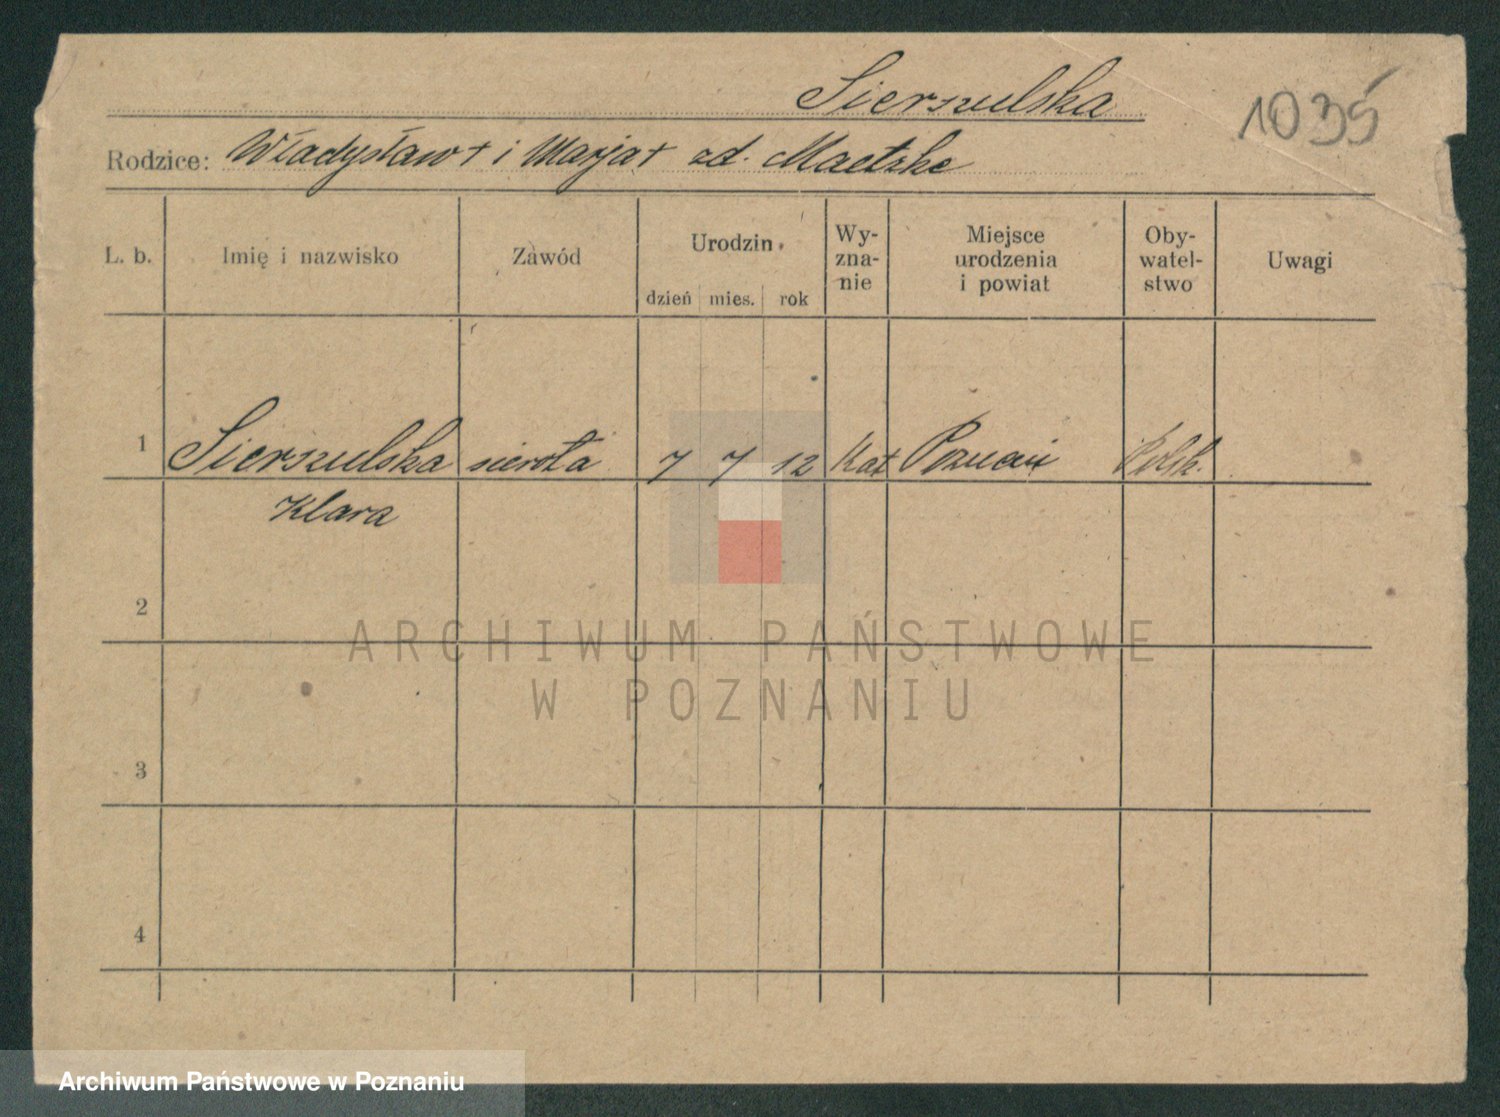 Sierszulska
1035
Rodzice: Władysław + i Marja + zd. Maetzke
L. b.
Imię i nazwisko
Zawód
Urodzin
dzień mies. rok
Wy-
zna-
nie
Miejsce
urodzenia
i powiat
Oby-
watel-
stwo
Uwagi
1 Sierszulska sierota 7 7 12 Kat Poznań Polsk.
Klara
2
3
4
ARCHIWUM PAŃSTWOWE
W POZNANIU
Archiwum Państwowe w Poznaniu